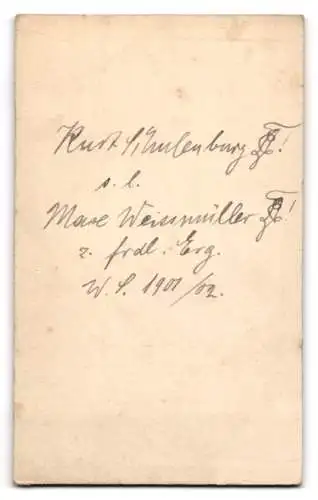 Kurt Schulenburg !
s. l.
Max Weissmüller !
z. frdl. Erg.
W. S. 1901/02.